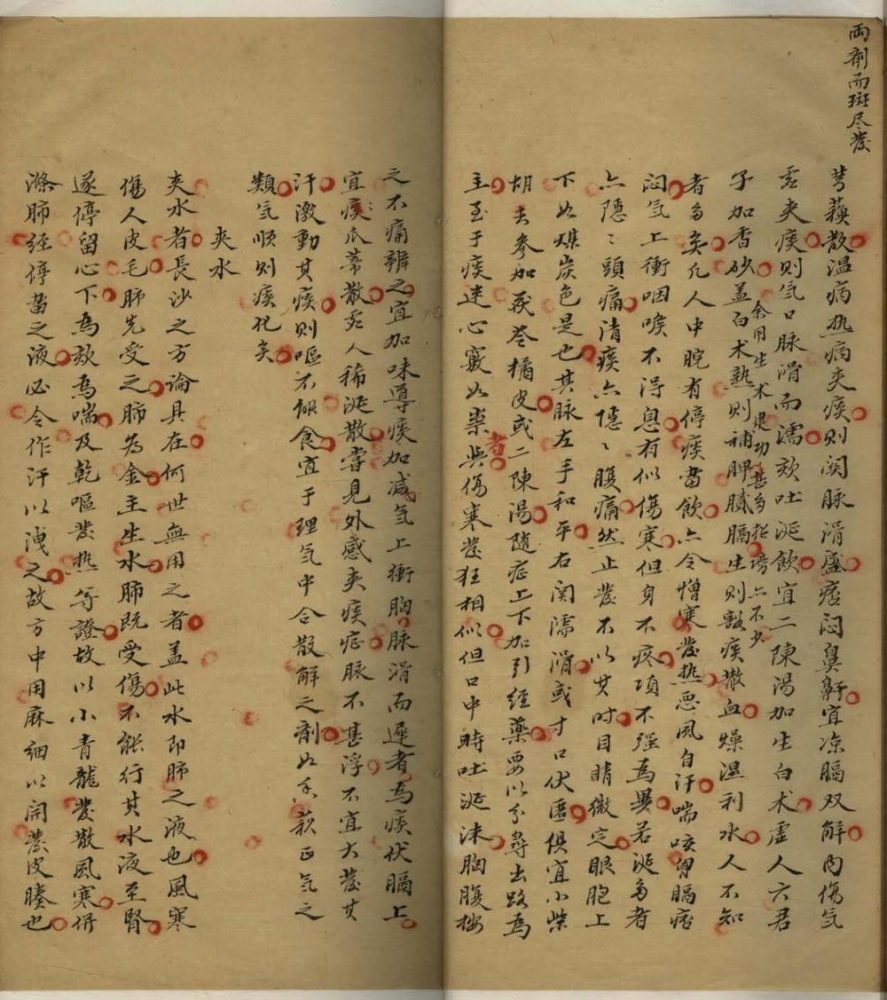 两剂而斑尽發
芎蘓散温病热病夹痰则関脉滑盛痞闷鼻鼾宜凉膈双解内傷气
雲夹痰则气口脉滑而濡欬吐涎飲宜二陳湯加生白术虚人六君
子加香砂盖白术熟则補脾膩膈生则豁痰散血燥湿利水人不知
余用生术建功甚多招謗亦不少
者多矣凡人中脘有停痰畜飲亦令憎寒發热恶风自汗喘咳胷膈痞
闷气上衝咽喉不得息有似傷寒但身不疼項不强為異若涎多者
亦隱〻頭痛清痰亦隱〻腹痛然止發不以其时目睛微定眼胞上
下如煤炭色是也其脉左手和平右関濡滑或寸口伏匿俱宜小柴
胡去参加茯苓橘皮或二陳湯随症上下加引經藥要以分尋出路為
主至于痰迷心竅如祟者與傷寒發狂相似但口中時吐涎沫胸腹按
之不痛辨之宜加味導痰加減气上衝胸脉滑而遲者為痰伏膈上
宜痰瓜蒂散老人稀涎散嘗見外感夹痰症脉不甚浮不宜大發其
汗激動其痰则嘔不能食宜于理气中合散解之劑如香蘓正气之
類气順则痰化矣
夹水
夹水者長沙之方論具在何世無用之者盖此水即肺之液也風寒
傷人皮毛肺先受之肺為金主生水肺既受傷不能行其水液至腎
遂停留心下為欬為喘及乾嘔發热等證故以小青龍發散風寒併
滌肺經停畜之液必令作汗以洩之故方中用麻細以開發皮腠也